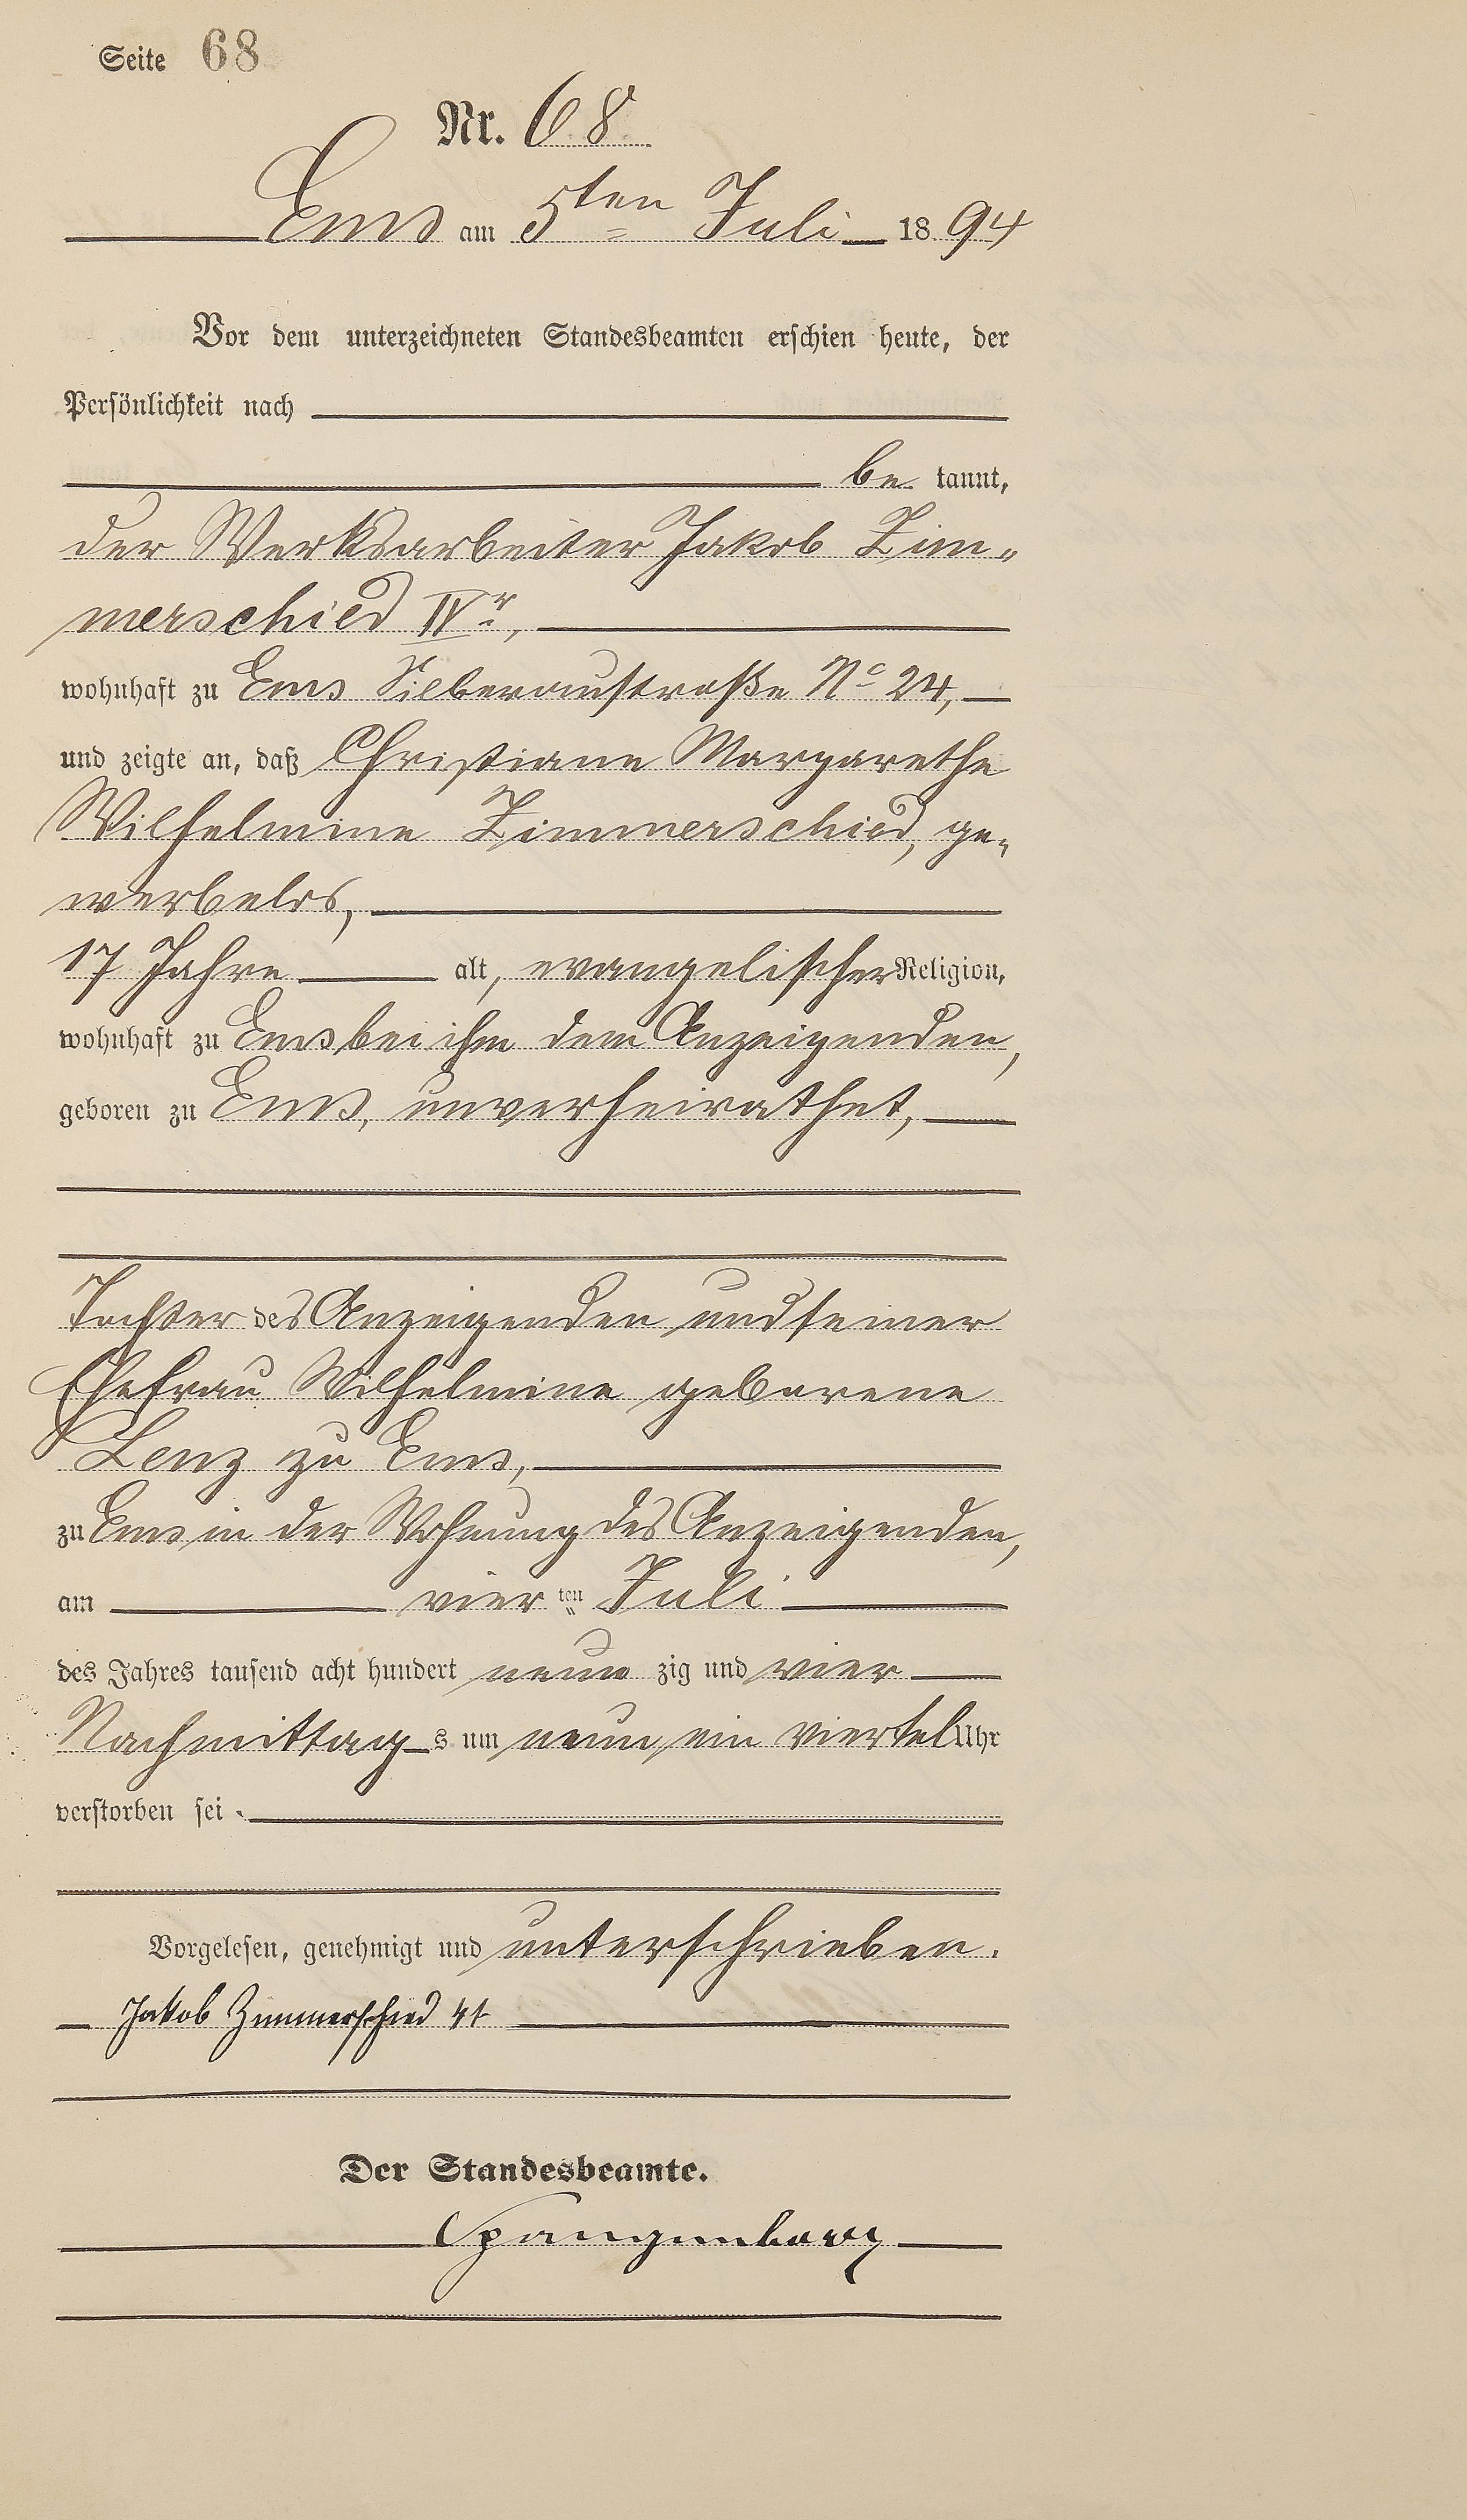 Seite 68
Nr. 68
Ems am 5ten Juli 1894
Vor dem unterzeichneten Standesbeamten erschien heute, der
Persönlichkeit nach
be kannt,
der Werksarbeiter Jakob Zim-
merschied IVr,
wohnhaft zu Ems Silberaustraße No 24,
und zeigte an, daß Christiane Margarethe
Wilhelmine Zimmerschied, ge-
werbelos,
17 Jahre alt, evangelischer Religion,
wohnhaft zu Ems bei ihm dem Anzeigenden,
geboren zu Ems, unverheirathet,
Tochter des Anzeigenden und seiner
Ehefrau Wilhelmine geborene
Lenz zu Ems,
zu Ems in der Wohnung des Anzeigenden,
am vier ten Juli
des Jahres tausend acht hundert neun zig und vier
Nachmittag s um neun ein viertel Uhr
verstorben sei.
Vorgelesen, genehmigt und unterschrieben.
Jakob Zimmerschied 4t
Der Standesbeamte.
Spangenberg